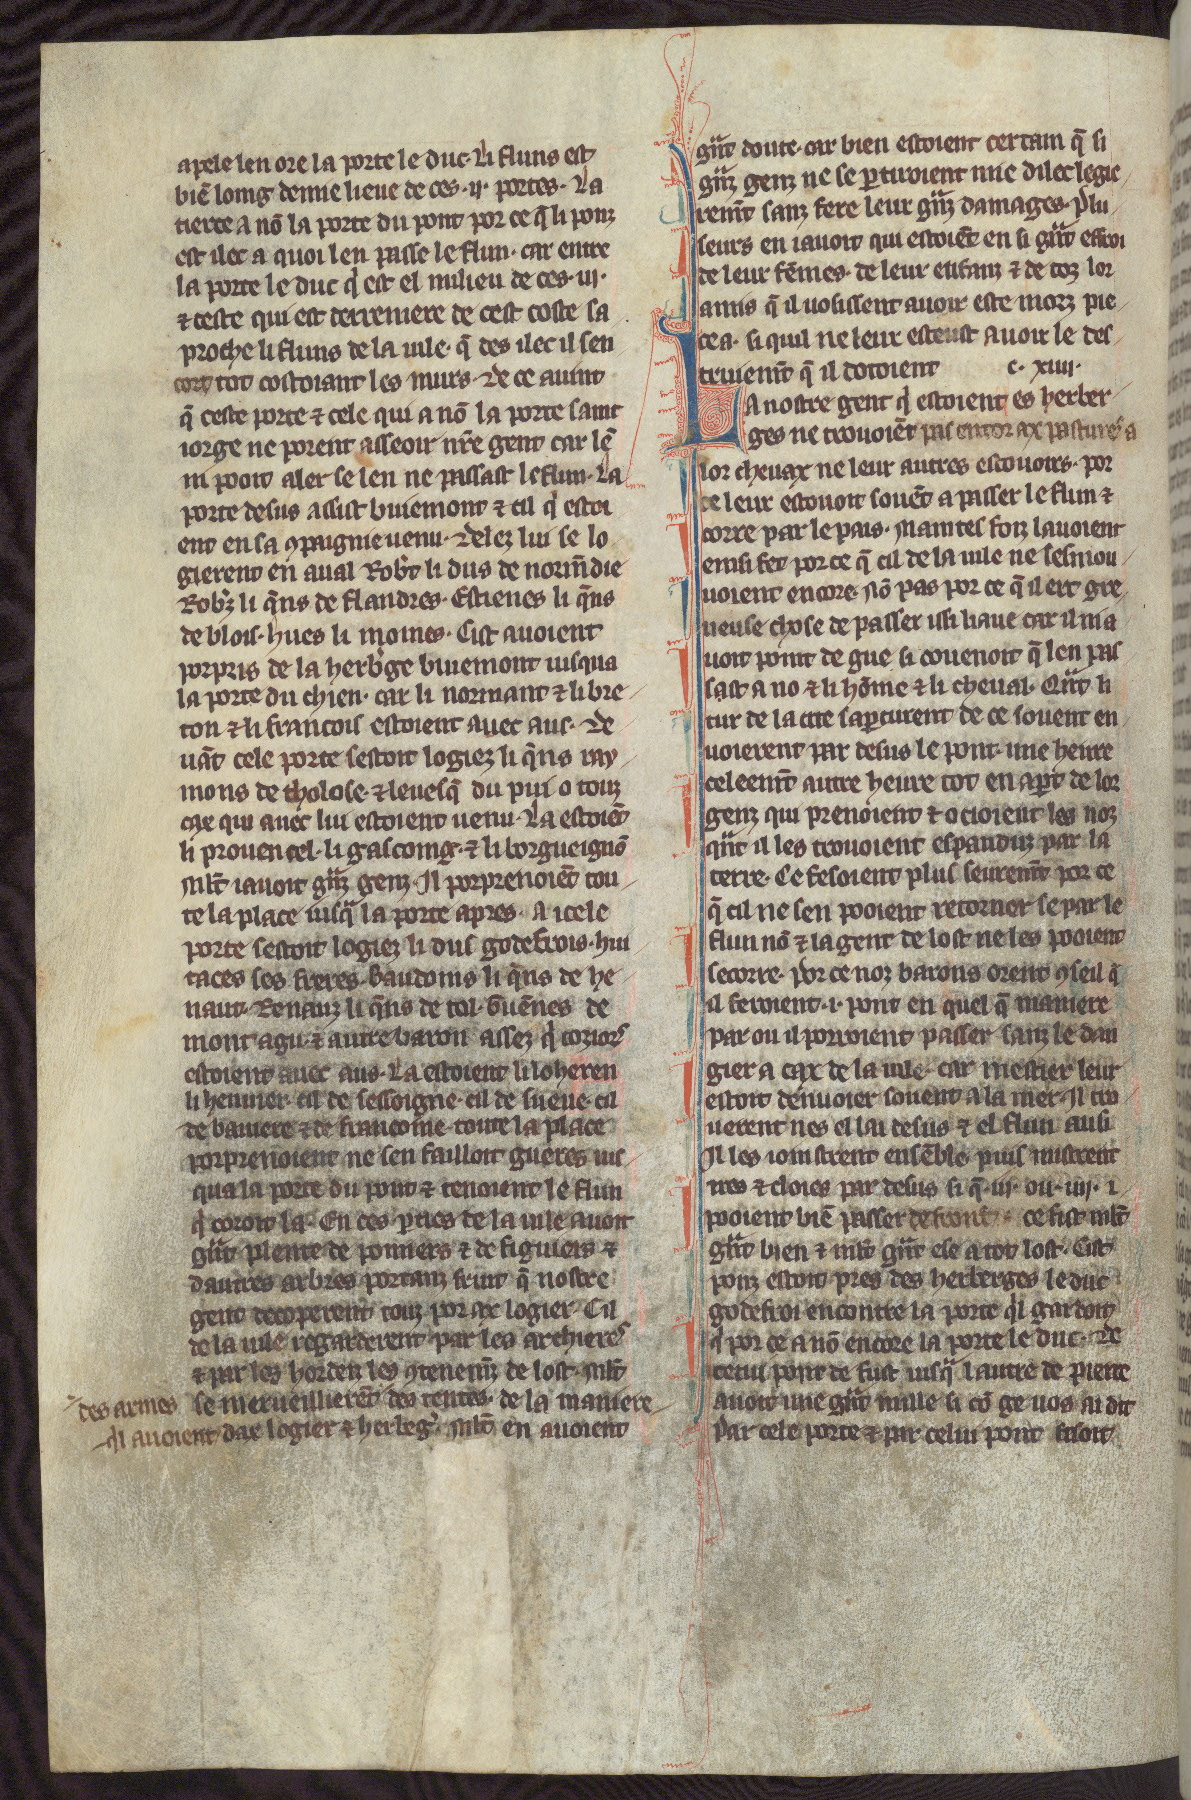 apele len ore la porte le duc. Li fluns est
biē loing demie lieue de ces .ij. portes. La
tierce a nō la porte du pont por ce q̄ li ponz
est ilec a quoi len passe le flun. car entre
la porte le duc q̇ est el milieu de ces .iij.
⁊ ceste qui est derreniere de cest coste sa
proche li fluns de la uile. q̄ des ilec il sen
cort tot costoiant les murs. De ce auint
q̄ ceste porte ⁊ cele qui a nō la porte saint
iorge ne porent asseoir nr̄e gent car lē
ni pooit aler se len ne passast le flun. La
porte desus assist buiemont ⁊ cil q̇ estoi
ent en sa ꝯpaignie uenu. Delez lui se lo
gierent en aual Rob't li dus de norm̄die
Rob'z li q̄ns de flandres. Estienes li q̄ns
de blois. hues li moines. Cist auoient
porpris de la herb'ge buiemont iusqua
la porte du chien. car li normant ⁊ li bre
ton ⁊ li francois estoient auec aus. De
uāt cele porte sestoit logiez li q̄ns ray
mons de tholose. ⁊ leuesq̄ du pui o touz
cax qui auec lui estoient uenu. La estoiēt
li prouencel. li gascoing. ⁊ li borgueignō
Mlt̄ iauoit gr̄nz genz. Il porprenoiēt tou
te la place iusq̄ la porte apres. A icele
porte sestoit logiez li dus godefrois. hui
taces ses freres. baudoins li q̄ns de he
naut. Renauz li q̄ns de tol. Guēnes de
mont agu. ⁊ autre baron assez q̇
estoient auec aus. La estoient li loheren
li hennier. cil de sessoigne. cil de sueue cil
de baiuiere ⁊ de franconie. toute la place
porprenoient ne sen failloit gueres ius
qua la porte du pont ⁊ tenoient le flun
q̇ coroit la. En ces p̱ties de la uile auoit
gr̄nt plente de pomiers ⁊ de figuiers ⁊
dautres arbres portanz fruit q̄ nostre
gent decoperent touz por ax logier. Cil
de la uile regarderent par les archieres
⁊ par les hordeiz les ꝯtenemz de lost. Mlt̄
des armes se merueillierēt des tentes. de la maniere
q̇l auoient dax logier ⁊ herbeg'. Mlt̄ en auoient
gr̄nt doute. car bien estoient certain q̄ si
gr̄nz genz ne se p̱tiroient mie dilec legie
remt̄ sanz fere leur gr̄nz damages. Plu
seurs en iauoit qui estoiēt en si gr̄nt effroi
de leur fēmes. de leur enfanz ⁊ de toz lor
amis q̄ il uosissent auoir este morz pie
cea. si quil ne leur esteust auoir le des
truiemt̄ q̄ il dotoient c. xiiii.
La nostre gent q̇ estoient es herber
ges ne trouoiēt pas entor ax pastures a
lor cheuax ne leur autres estouoirs. por
ce leur estouoit souēt a passer le flun ⁊
corre par le pais. Maintes foiz lauoient
einsi fet por ce q̄ cil de la uile ne sesmou
uoient encore. Nō pas por ce q̄ il ert gre
ueuse chose de passer issi liaue car il ni a
uoit point de gue si couenoit q̄ len pas
sast a no ⁊ li hōme ⁊ li cheual. Qn̄t li
tur de la cite sap̱curent de ce souent en
uoierent par desus le pont. une heure
celeemt̄ autre heure tot en ap̱t de lor
genz qui prenoient ⁊ ocioient les noz
qn̄t il les trouoient espanduz par la
terre. Ce fesoient plus seuremt̄ por ce
q̄ cil ne sen pooient retorner se par le
flun nō ⁊ la gent de lost ne les pooient
secorre. Por ce noz barons orent ꝯseil q̄
il feroient .i. pont en quel q̄ maniere
par ou il porroient passer sanz le dan
gier a cax de la uile. car mestier leur
estoit denuoier souent a la mer. Il tro
uerent nes el lai desus ⁊ el flun ausi
Il les ioinstrent ensēble puis mistrent
⁊ cloies par desus si q̄ .iij. ou .iiij. i
pooient biē passer de front. ce fist mlt̄
gr̄nt bien ⁊ mlt̄ gr̄nt ese a tot lost. Cist
ponz estoit pres des herberges le duc
godefroi encontre la porte q̇l gardoit
q̇ por ce a nō encore la porte le duc. De
celui pont de fust iusq̄ lautre de pierre
auoit une gr̄nt mille si cō ge uos ai dit
Par cele porte ⁊ par celui pont issoit